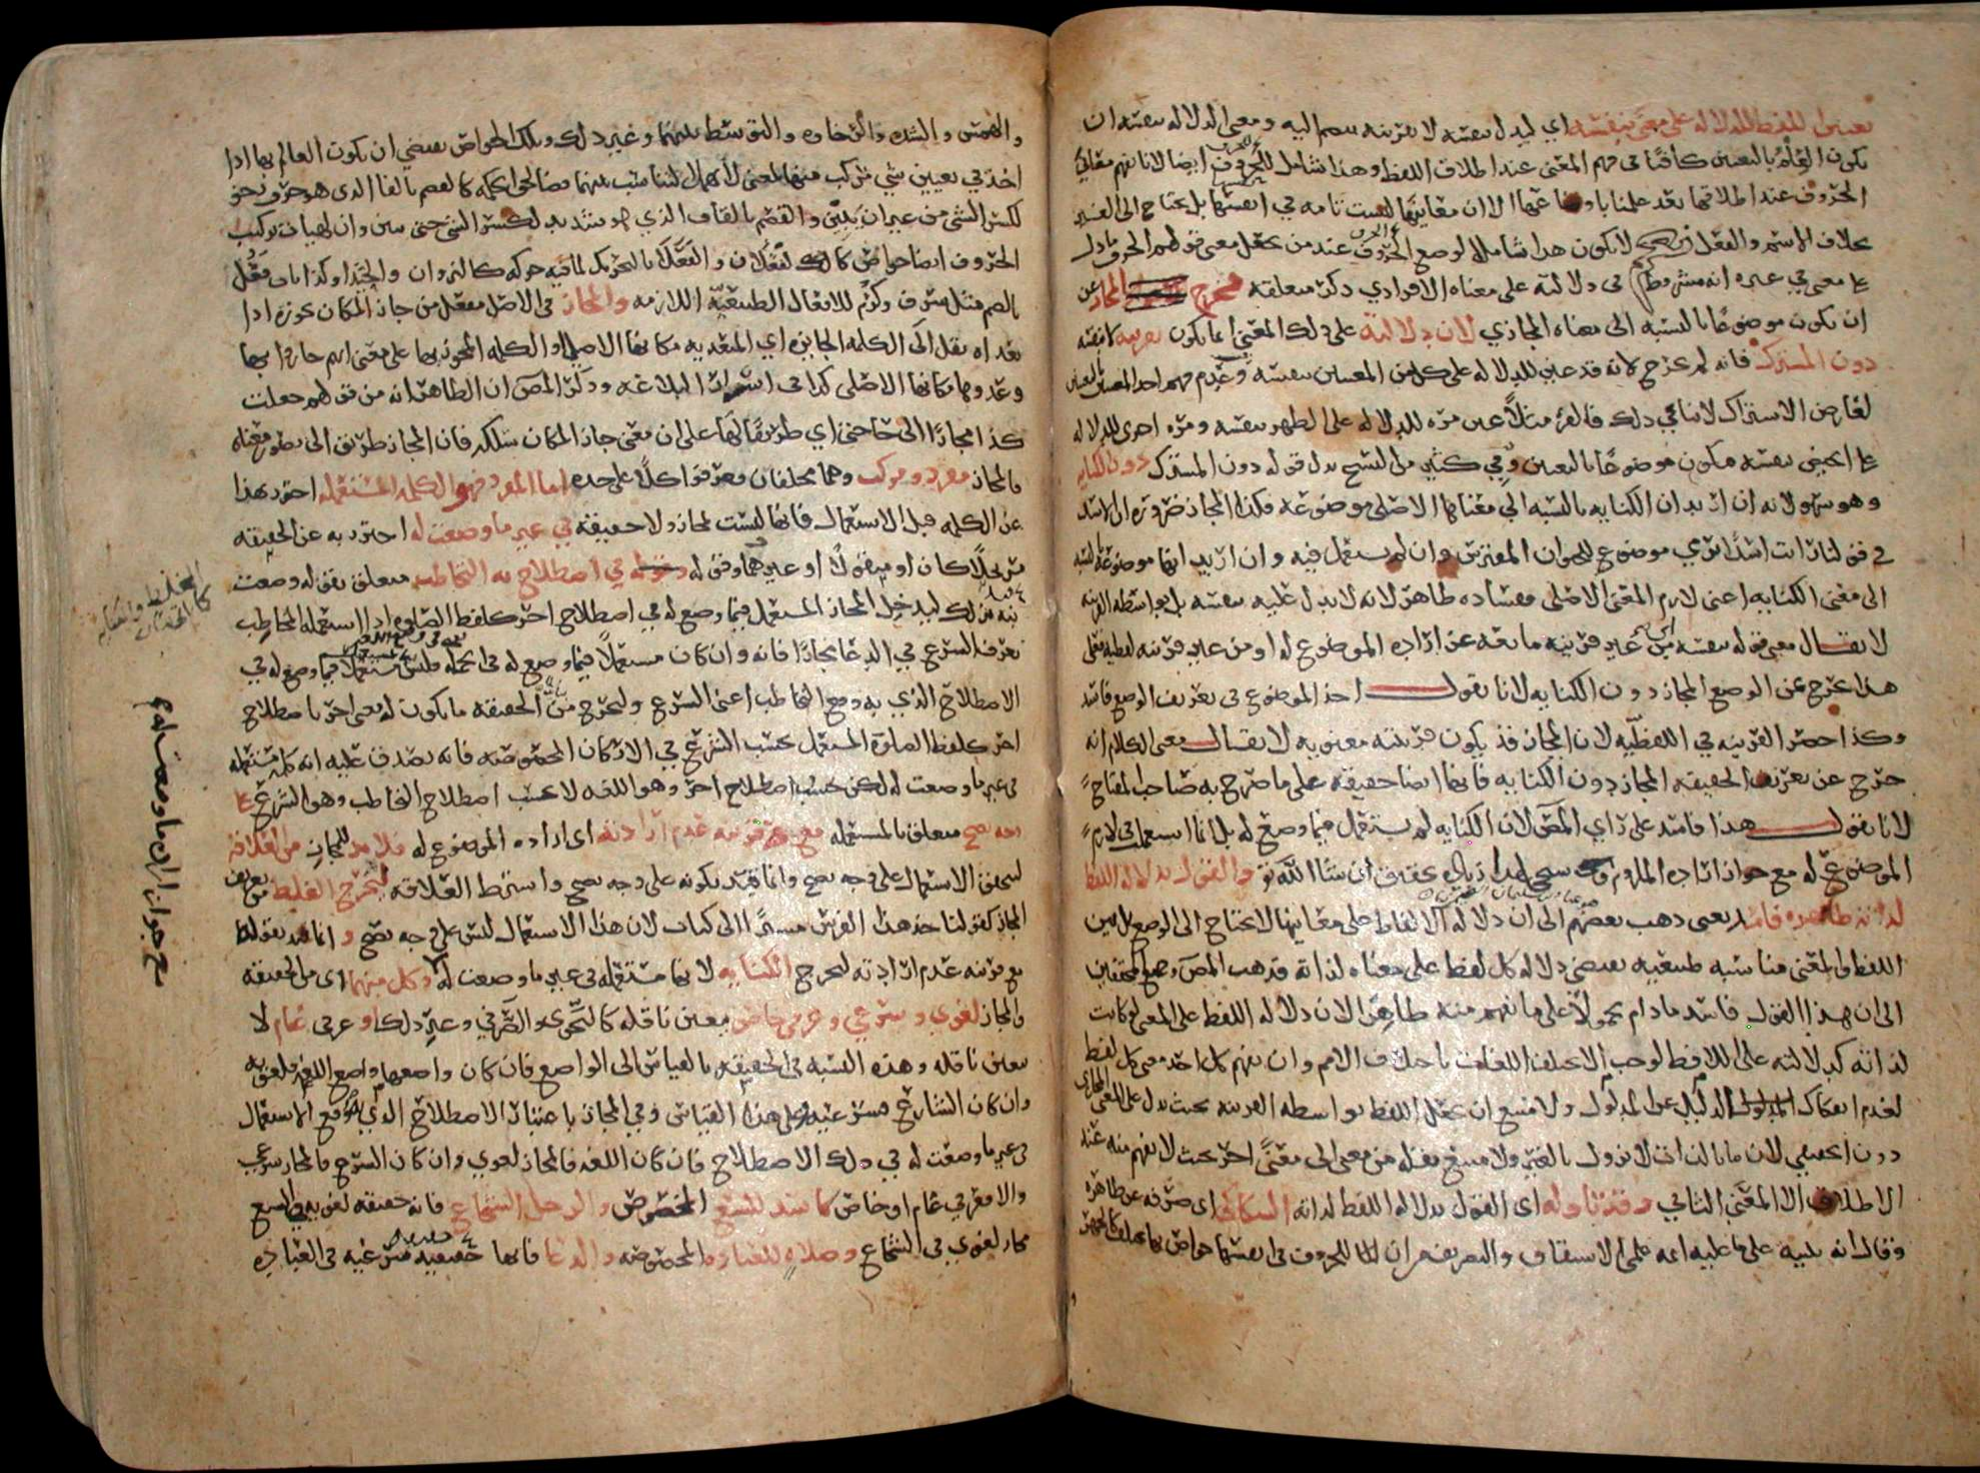 تعيين اللفظ للدلالة على معنى بنفسه اي ليدل بنفسه لا بقرينه ينضم اليه ومعنى الدلاله بنفسه ان
يكون العلم بالتعيين كافيا في فهم المعنى عند اطلاق اللفظ وهذا شامل للحروف ايضا لانا نفهم معاني
الحروف عند اطلاقها بعد علمنا باوضاعها الا ان معانيها ليست تامه في انفسها بل يحتاج الى الغير
بخلاف الاسم والفعل نعم لا يكون هذا شاملا لوضع الحروف عند من يجعل معنى قولهم الحرف ما دل
على معنى في غيره انه مشروط في دلالته على معناه الافرادي ذكر متعلقه فخرج المجاز عن
ان يكون موضوعا بالنسبه الى معناه المجازي لان دلالته على ذلك المعنى انما يكون بقرينه لا بنفسه
دون المشترك فانه لم يخرج لانه قد عين للدلاله على كل من المعنيين بنفسه وعدم فهم احد المعنيين بالتعيين
لعارض الاشتراك لا ينافي ذلك فالقرء مثلا عين مره للدلاله على الطهر بنفسه ومره اخرى للدلاله
على الحيض بنفسه فيكون موضوعا بالتعيين وفي كثير من النسخ بدل قوله دون المشترك دون الكنايه
وهو سهو لانه ان اريد ان الكنايه بالنسبه الى معناها الاصلي موضوعه فكذا المجاز ضروره ان الاسد
في قولنا رايت اسدا يرمي موضوع للحيوان المفترس وان لم يستعمل فيه وان اريد انها موضوعه بالنسبه
الى معنى الكنايه اعنى لازم المعنى الاصلي ففساده ظاهر لانه لا يدل عليه بنفسه بل بواسطه القرينه
لا يقال معنى قوله بنفسه من غير قرينه مانعه عن اراده الموضوع له او من غير قرينه لفظيه فعلى
هذا يخرج عن الوضع المجاز دون الكنايه لانا نقول اخذ الموضوع في تعريف الوضع فاسد
وكذا حصر القرينه في اللفظيه لان المجاز قد يكون قرينته معنويه لا يقال معنى الكلام انه
خرج عن تعريف الحقيقه المجاز دون الكنايه فانها ايضا حقيقه على ما صرح به صاحب المفتاح
لانا نقول هذا فاسد على راي المص لان الكنايه لم يستعمل فيما وضع له بل انما استعملت في لازم
الموضوع له مع جواز اراده الملزوم وسيجي لهذا زياده تحقيق ان شا الله تع والقول بدلاله اللفظ
لذاته ظاهره فاسد يعنى ذهب بعضهم الى ان دلاله الالفاظ على معانيها لا يحتاج الى الوضع بل بين
اللفظ والمعنى مناسبه طبيعيه يقتضي دلاله كل لفظ على معناه لذاته فذهب المص وجميع المحققين
الى ان هذا القول فاسد ما دام محمولا على ما يفهم منه ظاهرا لان دلاله اللفظ على المعنى لو كانت
لذاته كدلالته على اللافظ لوجب ان لا يختلف اللغات باختلاف الامم وان يفهم كل احد معنى كل لفظ
لعدم انفكاك الدليل عن المدلول ولامتنع ان يجعل اللفظ بواسطه القرينه بحيث يدل على المعنى المجازي
دون الحقيقي لان ما بالذات لا يزول بالغير ولامتنع نقله من معنى الى معنى اخر بحيث لا يفهم منه عند
الاطلاق الا المعنى الثاني وقد تاوله اى القول بدلاله اللفظ لذاته السكاكي اى صرفه عن ظاهره
وقال انه تنبيه على ما عليه ائمه علمي الاشتقاق والتصريف من ان للحروف في انفسها خواص بها يختلف كالجهر
والهمس والشده والرخاوه والتوسط بينهما وغير ذلك وتلك الخواص يقتضي ان يكون العالم بها اذا
اخذ في تعيين شي مركب منها لمعنى لا يهمل التناسب بينهما قضا لحق الحكمه كالفصم بالفا الذى هو حرف رخو
لكسر الشى من غير ان يبين والقصم بالقاف الذي هو شديد لكسر الشي حتى يبين وان لهيات تركيب
الحروف ايضا خواص كالفعلان والفعلى بالتحريك لما فيه حركه كالنزوان والحيدى وكذا باب فعل
بالضم مثل شرف وكرم للافعال الطبيعيه اللازمه والمجاز في الاصل مفعل من جاز المكان يجوزه اذا
تعداه نقل الى الكلمه الجايزه اي المتعديه مكانها الاصلي او الكلمه المجوز بها على معنى انهم جازوا بها
وعدوها مكانها الاصلى كذا في اسرار البلاغه وذكر المص ان الظاهر انه من قولهم جعلت
كذا مجازا الى حاجتي اي طريقا لها على ان معنى جاز المكان سلكه فان المجاز طريق الى تصور معناه
فالمجاز مفرد ومركب وهما مختلفان فعرفوا كلا على حده اما المفرد فهو الكلمه المستعمله احترز بهذا
عن الكلمه قبل الاستعمال فانها ليست بمجاز ولا حقيقه في غير ما وضعت له احترز به عن الحقيقه
مرتجلا كان او منقولا او غيرهما وقوله في اصطلاح به التخاطب متعلق بقوله وضعت
قيد بذلك ليدخل المجاز المستعمل فيما وضع له في اصطلاح اخر كلفظ الصلوه اذا استعمله المخاطب
بعرف الشرع في الدعا مجازا فانه وان كان مستعملا فيما وضع له في الجمله فليس مستعملا فيما وضع له في
الاصطلاح الذي به وقع التخاطب اعنى الشرع وليخرج من الحقيقه ما يكون له معنى اخر باصطلاح
اخر كلفظ الصلوه المستعمل بحسب الشرع في الاركان المخصوصه فانه يصدق عليه انه كلمه مستعمله
في غير ما وضعت له لكن بحسب اصطلاح اخر وهو اللغه لا بحسب اصطلاح التخاطب وهو الشرع على
وجه يصح متعلق بالمستعمله مع قرينه عدم ارادته اى اراده الموضوع له فلا بد للمجاز من العلاقه
ليتحقق الاستعمال على وجه يصح وانما قيد بكونه على وجه يصح واشترط العلاقه ليخرج الغلط من تعريف
المجاز كقولنا خذ هذا الفرس مشيرا الى كتاب لان هذا الاستعمال ليس على وجه يصح وانما قيد بقوله
مع قرينه عدم ارادته ليخرج الكنايه لانها مستعمله في غير ما وضعت له وكل منهما اى من الحقيقه
والمجاز لغوي وشرعي وعرفي خاص يتعين ناقله كالنحوي والصرفي وغير ذلك او عرفي عام لا
يتعين ناقله وهذه النسبه في الحقيقه بالقياس الى الواضع فان كان واضعها واضع اللغه فلغويه
وان كان الشارع فشرعيه وعلى هذا القياس وفي المجاز باعتبار الاصطلاح الذي وقع الاستعمال
في غير ما وضعت له في ذلك الاصطلاح فان كان اللغه فالمجاز لغوي وان كان الشرع فالمجاز شرعي
والا فعرفي عام او خاص كاسد للسبع المخصوص والرجل الشجاع فانه حقيقه لغويه في السبع
مجاز لغوي في الشجاع وصلاه للعباده المخصوصه والدعا فانها حقيقه شرعيه في العباده